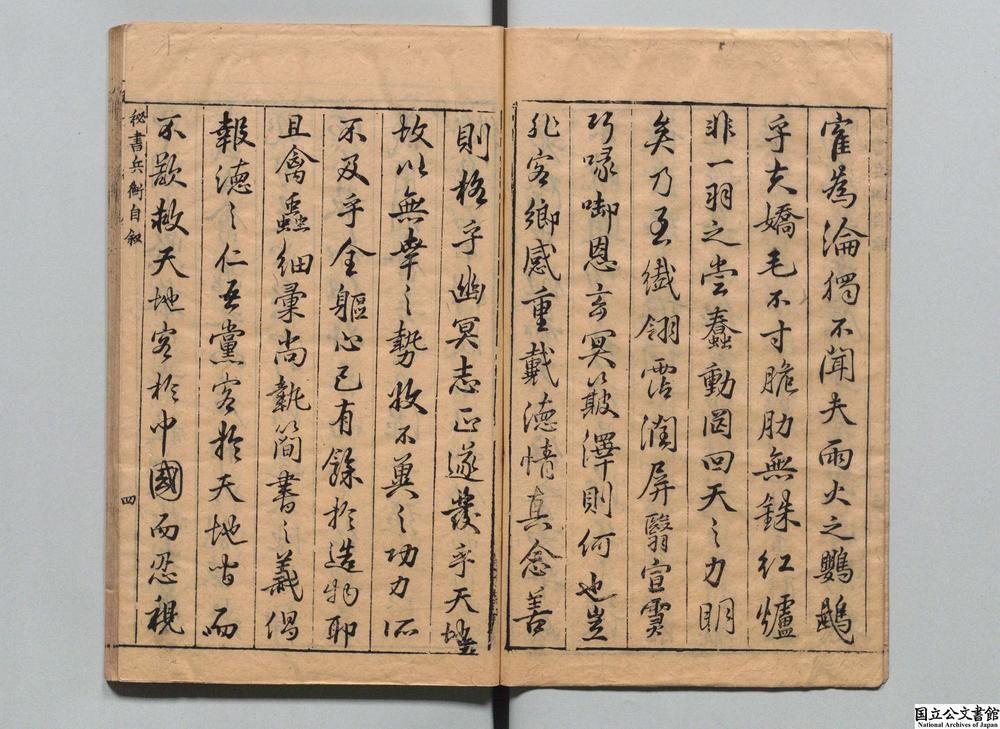 寉為淪獨不聞夫雨火之鸚鵡
乎夫嬌毛不寸脆肋無銖紅爐
非一羽之嘗蠢動罔回天之力明
矣乃至纎翎霑潤屏翳宣雲
巧喙啣恩玄冥簸澤則何也豈
非客鄉感重戴德情真念善
則格乎幽冥志正遂發乎天地
故以無幸之勢收不冀之功力所
不及乎全軀心已有餘於造物耶
且禽蟲細彙尚執簡書之義偈
報德之仁吾黨客於天地間而
不歆救天地客於中國而忍視
秘書兵衡自敘
四
国立公文書館
National Archives of Japan